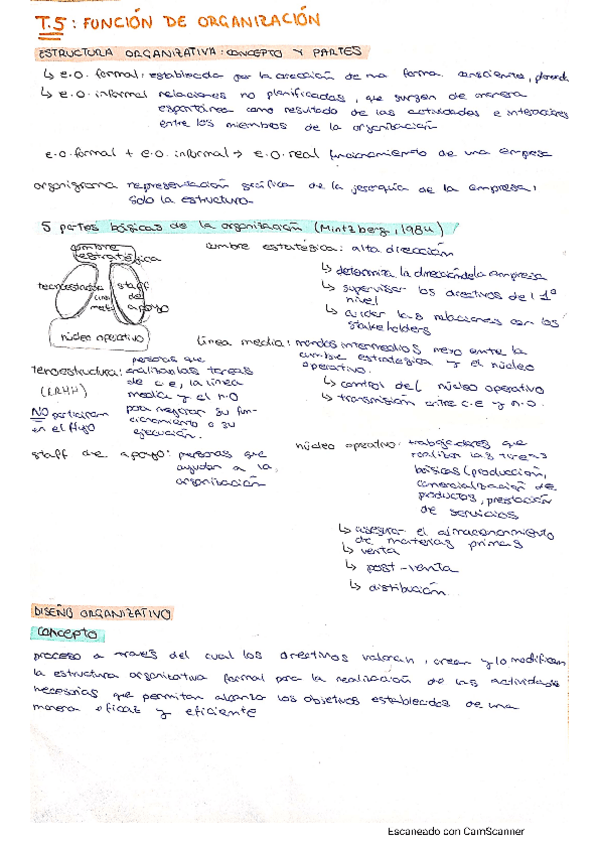 T.5: FUNCIÓN DE ORGANIZACIÓN
ESTRUCTURA ORGANIZATIVA: CONCEPTO Y PARTES
↳ e.o. formal: establecida por la dirección de una forma consciente,
↳ e.o. informal relaciones no planificadas, que surgen de manera
espontánea como resultado de las actividades e interacciones
entre los miembros de la organización
e.o. formal + e.o. informal → e.o. real funcionamiento de una empresa
organigrama representación gráfica de la jerarquía de la empresa,
solo la estructura
5 partes básicas de la organización (Mintzberg, 1984)
cumbre
estratégica
tecnoestructura
línea
media
staff
de
apoyo
núcleo operativo
cumbre estratégica: alta dirección
↳ determina la dirección de la empresa
↳ supervisar los directivos del 1º
nivel
↳ cuidar las relaciones con los
stakeholders
línea media: mandos intermedios nexo entre la
cumbre estratégica y el núcleo
operativo.
↳ control del núcleo operativo
↳ transmisión entre c.e y n.o.
tecnoestructura: personas que
analizan las tareas
de c.e, la línea
media y el n.o
para mejorar su fun-
cionamiento o su
ejecución.
(RRHH)
NO participan
en el flujo
staff de apoyo: personas que
ayudan a la
organización
núcleo operativo: trabajadores que
realizan las tareas
básicas (producción,
comercialización de
productos, prestación
de servicios
↳ asegurar el almacenamiento
de materias primas
↳ venta
↳ post-venta
↳ distribución.
DISEÑO ORGANIZATIVO
concepto
proceso a través del cual los directivos valoran, crean y/o modifican
la estructura organizativa formal para la realización de las actividades
necesarias que permitan alcanzar los objetivos establecidos de una
manera eficaz y eficiente
Escaneado con CamScanner